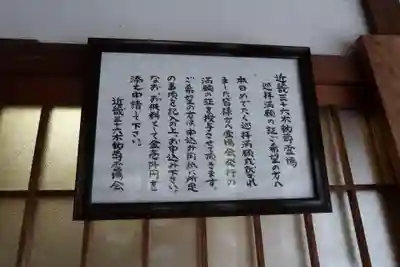 近畿三十六不動尊霊場
巡拝満願の証ご希望の方へ
本日めでたく巡拝満願成就され
ました皆様方へ霊場会発行の
満願の証を授与させて頂きます。
ご希望の方は申込み用紙に所定
の事項を記入の上お申込み下さい。
なお、お供料として金壱阡円を
添え申請して下さい。
近畿三十六不動尊霊場会